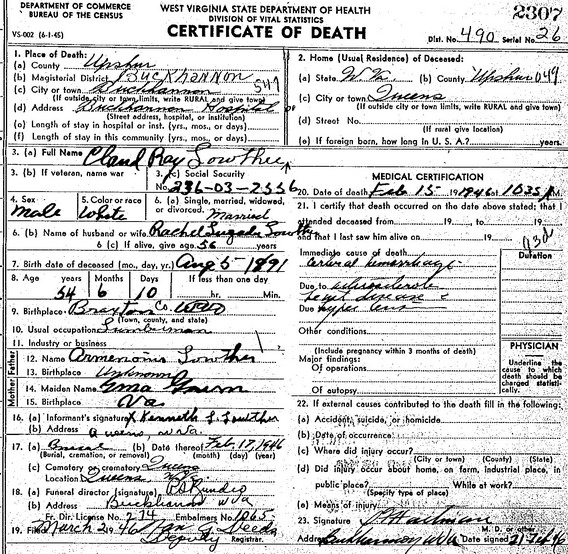 DEPARTMENT OF COMMERCE
BUREAU OF THE CENSUS
VS-002 (6-1-45)
WEST VIRGINIA STATE DEPARTMENT OF HEALTH
DIVISION OF VITAL STATISTICS
CERTIFICATE OF DEATH
2307
Dist. No. 490 Serial No. 26
1. Place of Death:
(a) County Upshur
(b) Magisterial District Buckhannon
(c) City or town Buckhannon 549
(If outside city or town limits, write RURAL and give town)
(d) Address Buckhannon Hospital
(Street address, hospital, or institution)
(e) Length of stay in hospital or inst. (yrs., mos., or days)
(f) Length of stay in this community (yrs., mos., or days)
2. Home (Usual Residence) of Deceased:
(a) State W. Va. (b) County Upshur 049
(c) City or town Queens
(If outside city or town limits, write RURAL and give town)
(d) Street No.
(If rural give location)
(e) If foreign born, how long in U. S. A.? years.
3. (a) Full Name Claud Ray Lowther
3. (b) If veteran, name war
3. (c) Social Security
No. 236-03-2556
4. Sex Male
5. Color or race White
6. (a) Single, married, widowed, or divorced. Married
6. (b) Name of husband or wife Rachel Lowther
6 (c) If alive, give age 56 years
7. Birth date of deceased (mo., day, yr.) Aug 5 1891
8. Age years Months Days If less than one day
54 6 10 hr. Min.
9. Birthplace Braxton Co. W Va
(Town, county, and state)
10. Usual occupation Lumberman
11. Industry or business
Father
12. Name Lowther
13. Birthplace Unknown
Mother
14. Maiden Name Ema
15. Birthplace Va
16. (a) Informant's signature X Kenneth L. Lowther
(b) Address Queens, W Va
17. (a) Burial (b) Date thereof Feb. 17, 1946
(Burial, cremation, or removal) (month) (day) (year)
(c) Cemetery or crematory Queens
Location Queens, W. Va
18. (a) Funeral director (signature)
(b) Address Buckhannon W Va
Fr. Dir. License No. 274 Embalmers No. 1065
19. Filed March 2, 1946
Deputy Registrar.
MEDICAL CERTIFICATION
20. Date of death Feb 15 1946 at 10:35 M.
21. I certify that death occurred on the date above stated; that I
attended deceased from 19 , to 19
and that I last saw him alive on 19
Immediate cause of death Duration
Cerebral hemorrhage
Due to
heart disease
Due to
Other conditions
(Include pregnancy within 3 months of death)
Major findings:
Of operations
Of autopsy
PHYSICIAN
Underline the cause to which death should be charged statistically.
22. If external causes contributed to the death fill in the following:
(a) Accident, suicide, or homicide
(b) Date of occurrence
(c) Where did injury occur?
(City) (County) (State)
(d) Did injury occur about home, on farm, industrial place, in
public place? While at work?
(Specify type of place)
(e) Means of injury
23. Signature
M. D. or other
Address Buckhannon W Va Date signed 21 Feb 46